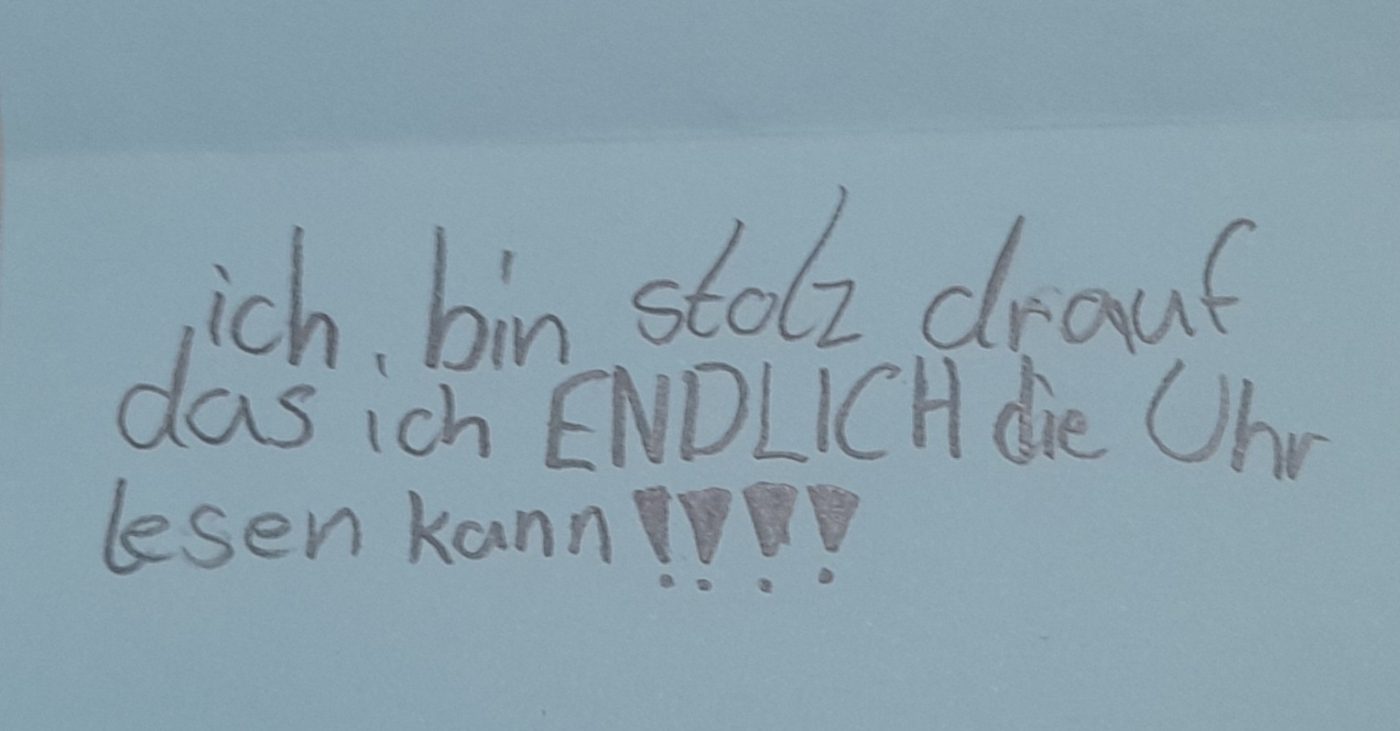 ich bin stolz drauf
das ich ENDLICH die Uhr
lesen kann!!!!